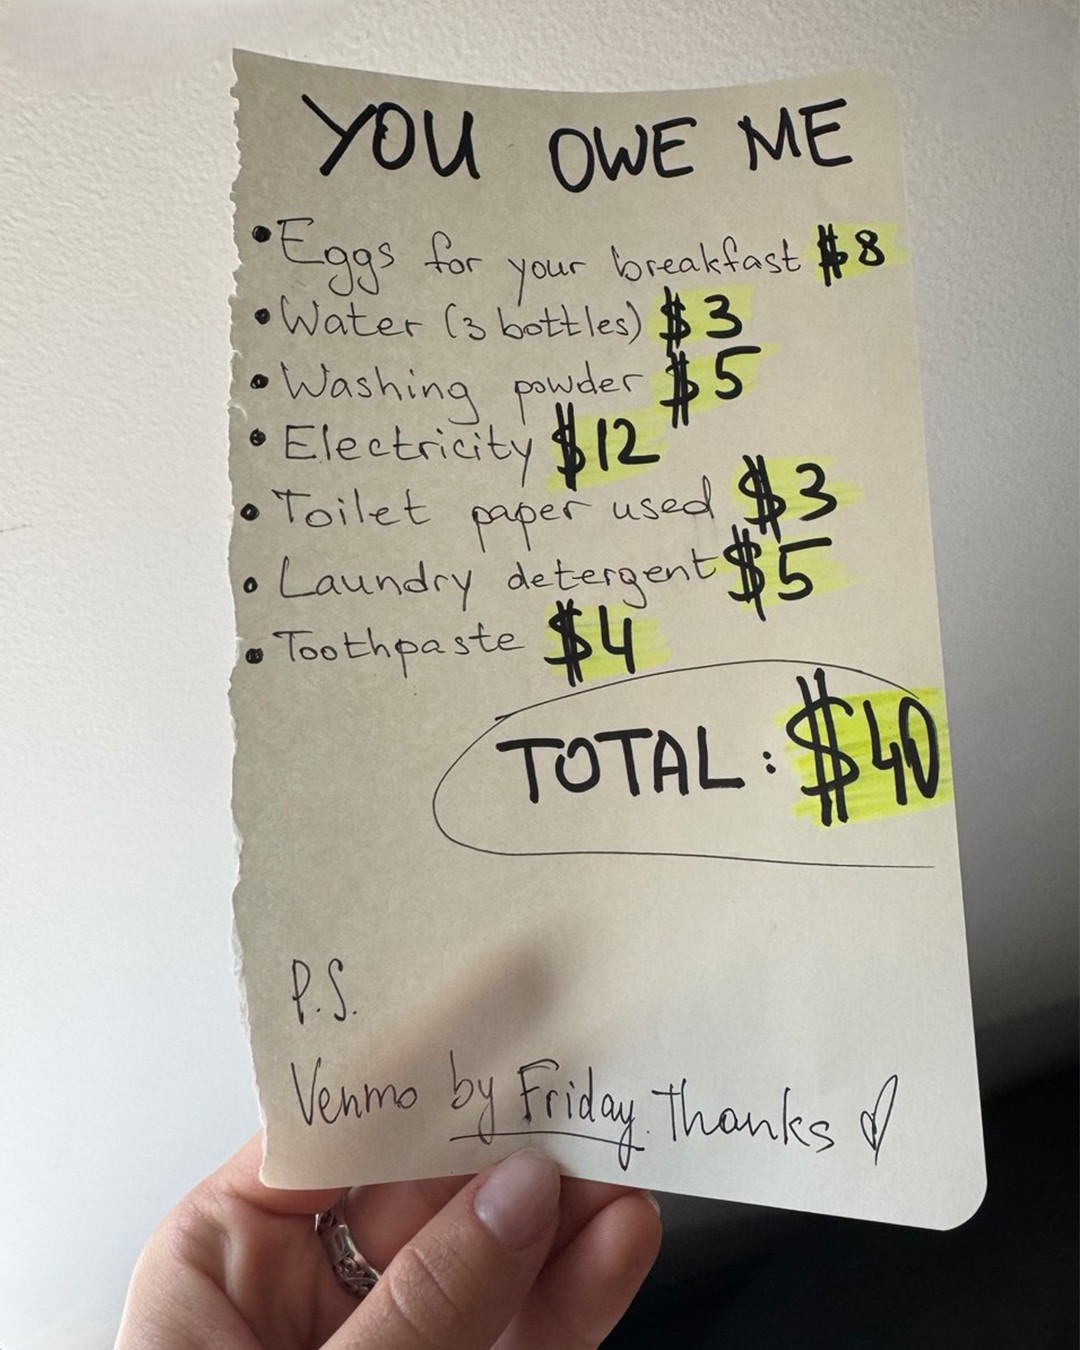 YOU OWE ME
• Eggs for your breakfast $8
• Water (3 bottles) $3
• Washing powder $5
• Electricity $12
• Toilet paper used $3
• Laundry detergent $5
• Toothpaste $4
TOTAL: $40
P.S.
Venmo by Friday. Thanks ♡